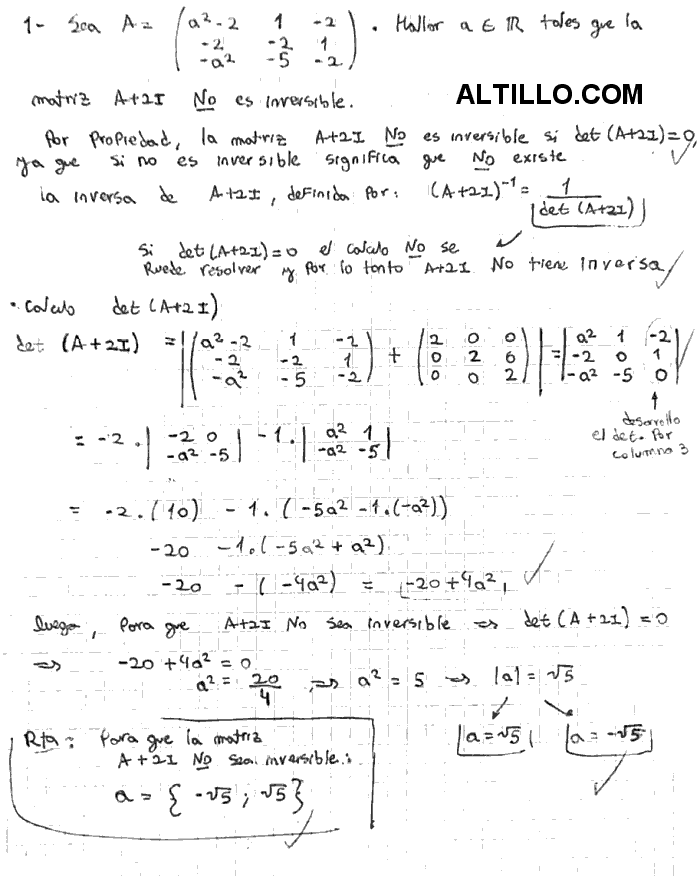 1- Sea A = ( a²-2 1 -2 ) . Hallar a ∈ ℝ tales que la
( -2 -2 1 )
( -a² -5 -2 )
matriz A+2I No es inversible.
ALTILLO.COM
Por Propiedad, la matriz A+2I No es inversible si det(A+2I)=0,
ya que si no es inversible significa que No existe
la inversa de A+2I, definida por: (A+2I)⁻¹ = 1 / det(A+2I)
Si det(A+2I)=0 el calculo No se
Puede resolver y por lo tanto A+2I No tiene inversa
• Calculo det(A+2I)
det (A+2I) = |( a²-2 1 -2 ) + ( 2 0 0 )| = | a² 1 -2 |
( -2 -2 1 ) ( 0 2 0 ) | -2 0 1 |
( -a² -5 -2 ) ( 0 0 2 ) | -a² -5 0 |
desarrollo
el det. Por
columna 3
= -2 . | -2 0 | -1 . | a² 1 |
| -a² -5 | | -a² -5 |
= -2.(10) - 1.(-5a² -1.(-a²))
-20 -1.(-5a² + a²)
-20 - (-4a²) = -20+4a²
luego, Para que A+2I No sea inversible => det(A+2I)=0
=> -20+4a² = 0
a² = 20/4 => a² = 5 => |a| = √5
a=√5 a=-√5
Rta: Para que la matriz
A+2I No sea inversible:
a = { -√5 ; √5 }